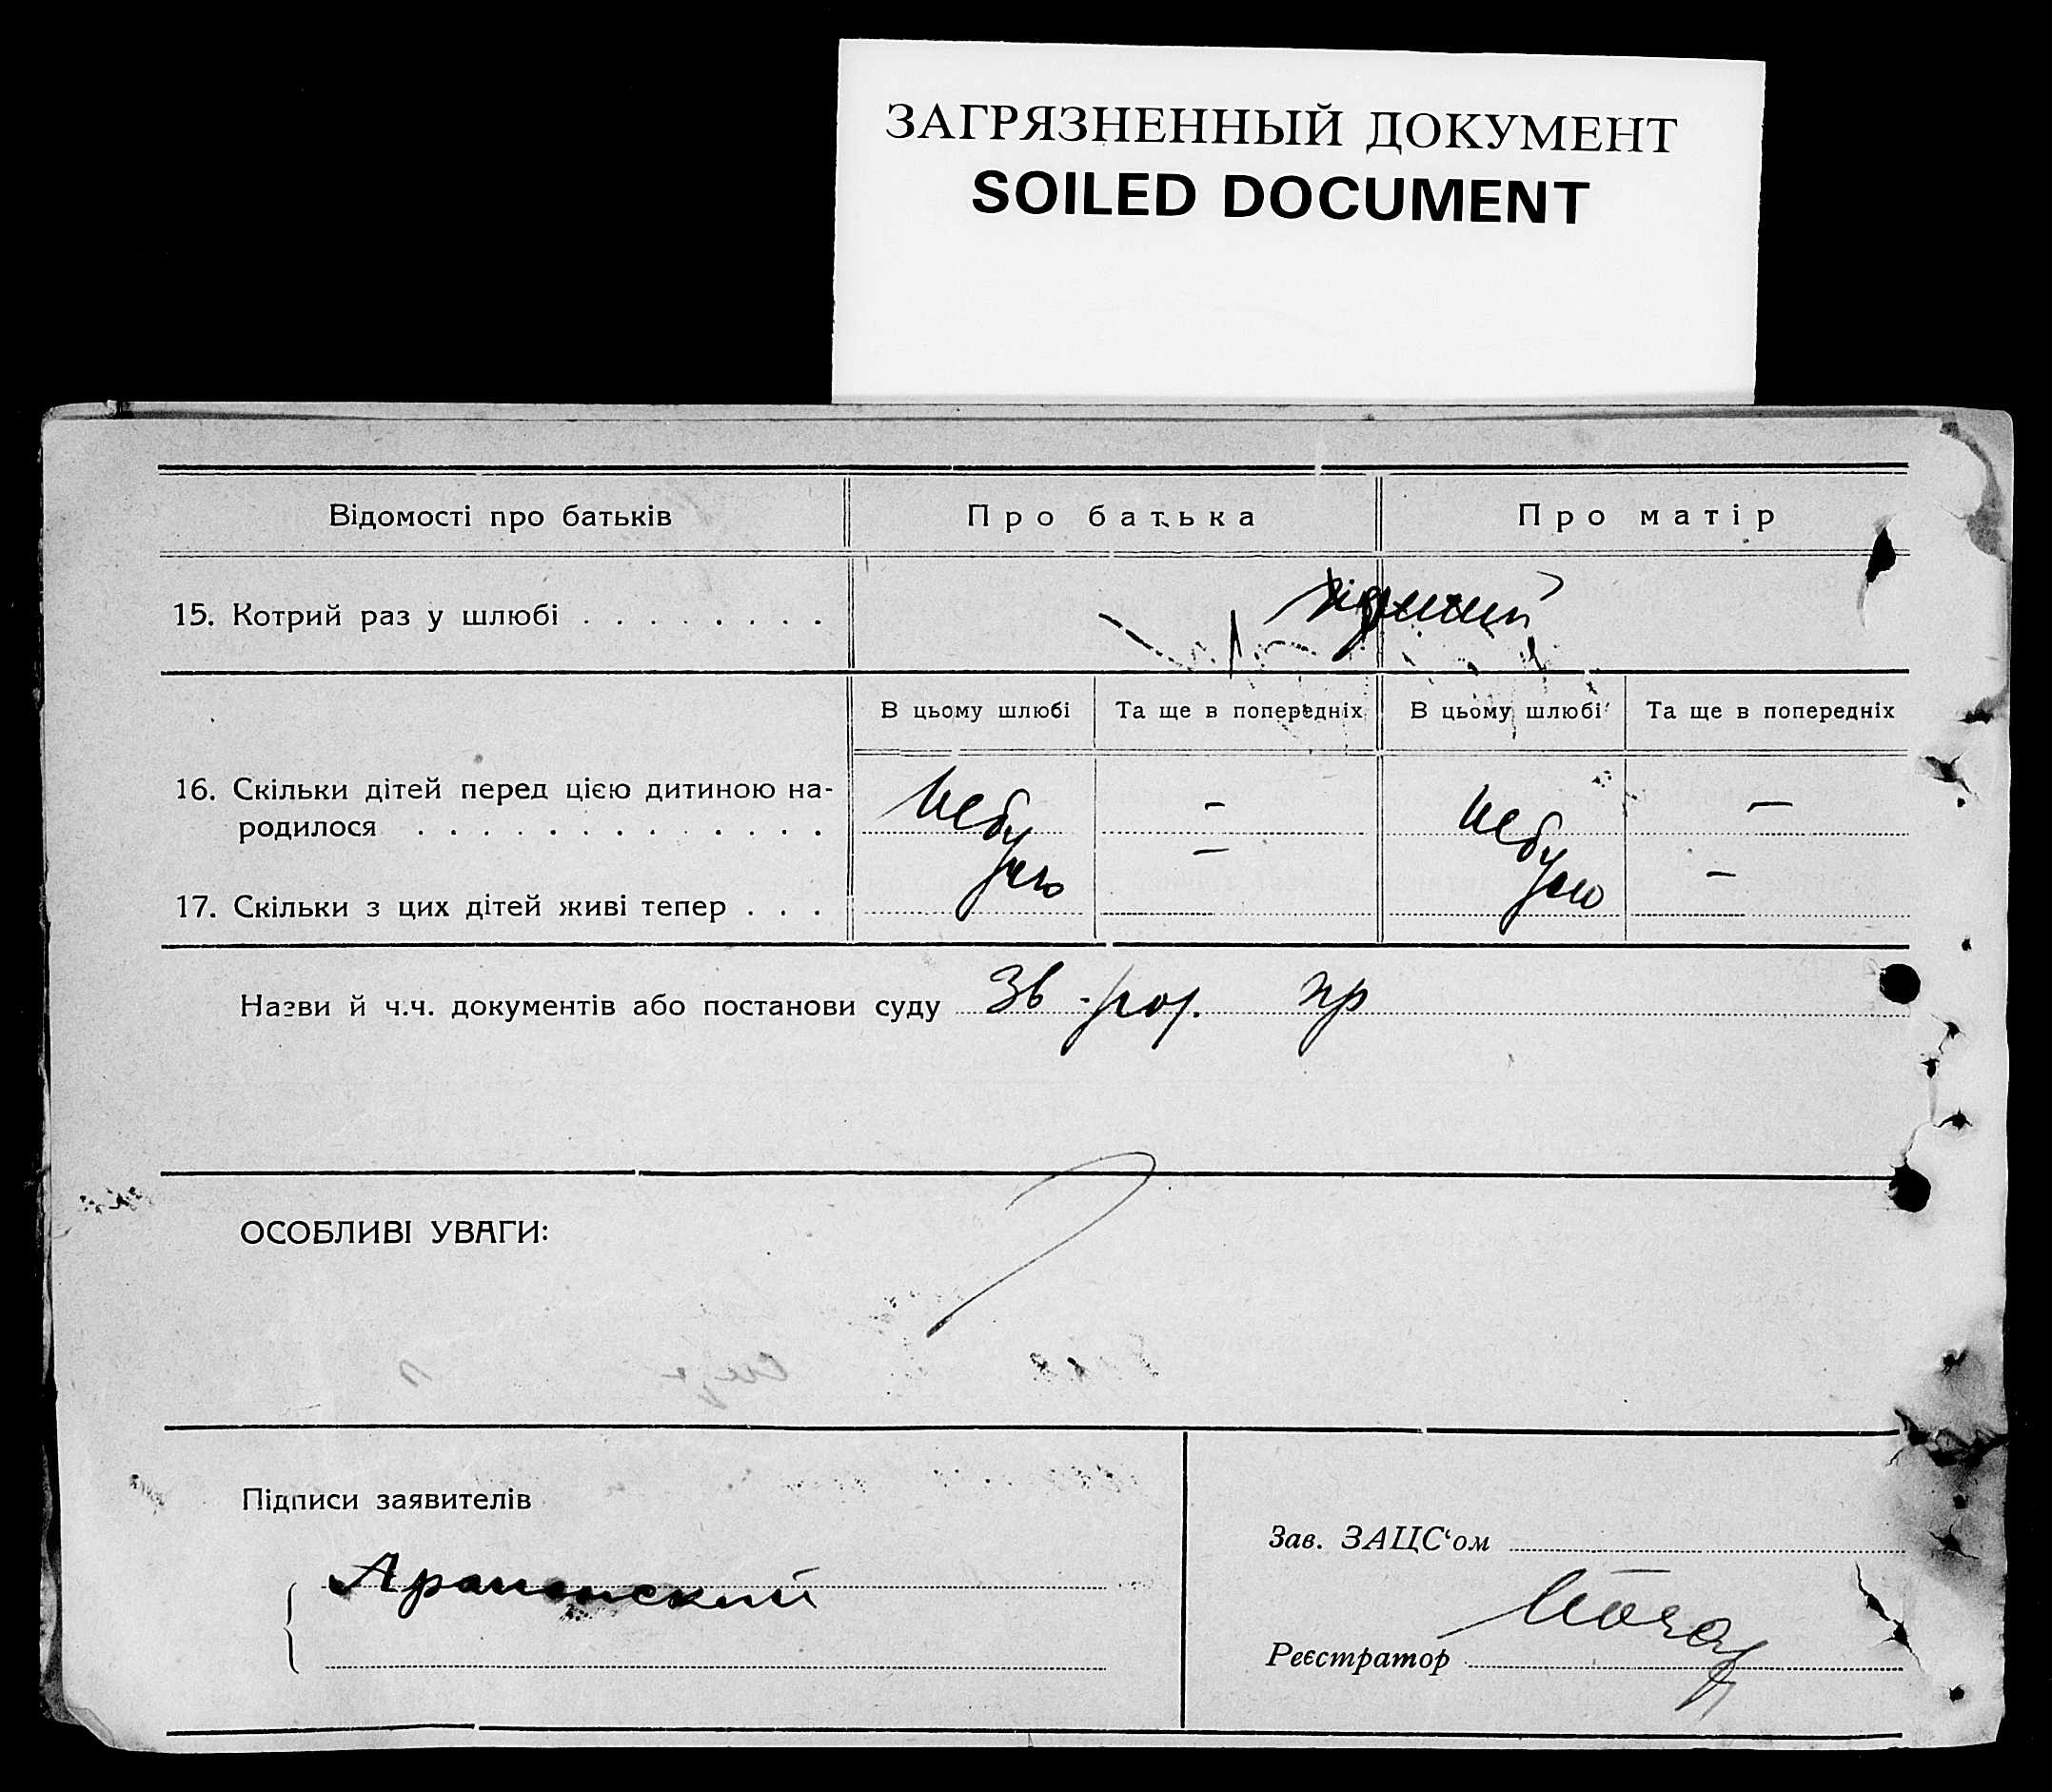 ЗАГРЯЗНЕННЫЙ ДОКУМЕНТ
SOILED DOCUMENT
Відомості про батьків Про батька Про матір
15. Котрий раз у шлюбі . . . . . . . .
В цьому шлюбі Та ще в попередніх В цьому шлюбі Та ще в попередніх
16. Скільки дітей перед цією дитиною на-
родилося . . . . . . . . . . . . . небу – небу –
17. Скільки з цих дітей живі тепер . . . ло – ло –
Назви й ч.ч. документів або постанови суду Зв. пр
ОСОБЛИВІ УВАГИ:
Підписи заявителів
Зав. ЗАЦС‘ом
Реєстратор